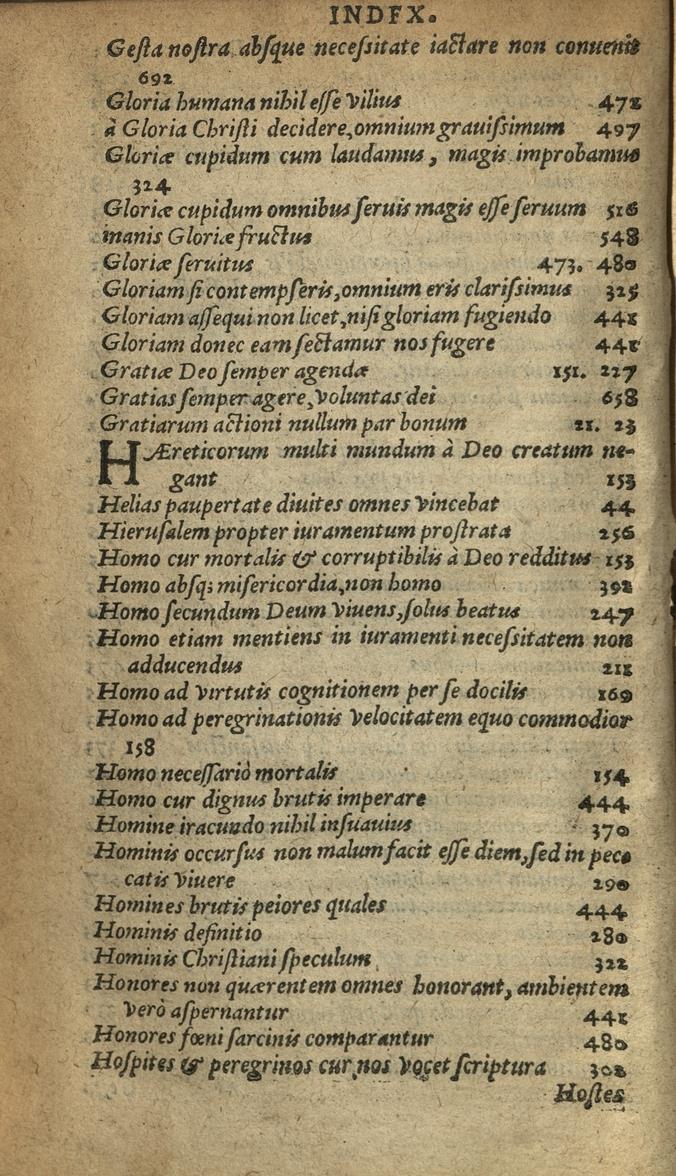 INDFX.
Geſta noſtra abſque neceſsitate iactare non conuenit
692
Gloria humana nihil eſſe vilius 472
à Gloria Chriſti decidere, omnium grauiſsimum 497
Gloriæ cupidum cum laudamus, magis improbamus
324
Gloriæ cupidum omnibus ſeruis magis eſſe ſeruum 516
inanis Gloriæ fructus 548
Gloriæ ſeruitus 473. 480
Gloriam ſi contempſeris, omnium eris clariſsimus 325
Gloriam aſſequi non licet, niſi gloriam fugiendo 441
Gloriam donec eam ſectamur nos fugere 441
Gratiæ Deo ſemper agendæ 151. 227
Gratias ſemper agere, voluntas dei 658
Gratiarum actioni nullum par bonum 21. 23
HÆreticorum multi mundum à Deo creatum ne-
gant 153
Helias paupertate diuites omnes vincebat 44
Hieruſalem propter iuramentum proſtrata 256
Homo cur mortalis & corruptibilis à Deo redditus 153
Homo abſq; miſericordia, non homo 392
Homo ſecundum Deum viuens, ſolus beatus 247
Homo etiam mentiens in iuramenti neceſsitatem non
adducendus 211
Homo ad virtutis cognitionem per ſe docilis 169
Homo ad peregrinationis velocitatem equo commodior
158
Homo neceſſariò mortalis 154
Homo cur dignus brutis imperare 444
Homine iracundo nihil inſuauius 370
Hominis occurſus non malum facit eſſe diem, ſed in pec
catis viuere 290
Homines brutis peiores quales 444
Hominis definitio 280
Hominis Chriſtiani ſpeculum 322
Honores non quærentem omnes honorant, ambientem
verò aſpernantur 441
Honores fœni ſarcinis comparantur 480
Hoſpites & peregrinos cur nos vocet ſcriptura 302
Hoſtes